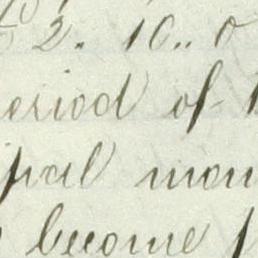 2.. 10.. 0
eriod of
ipal mon
become p